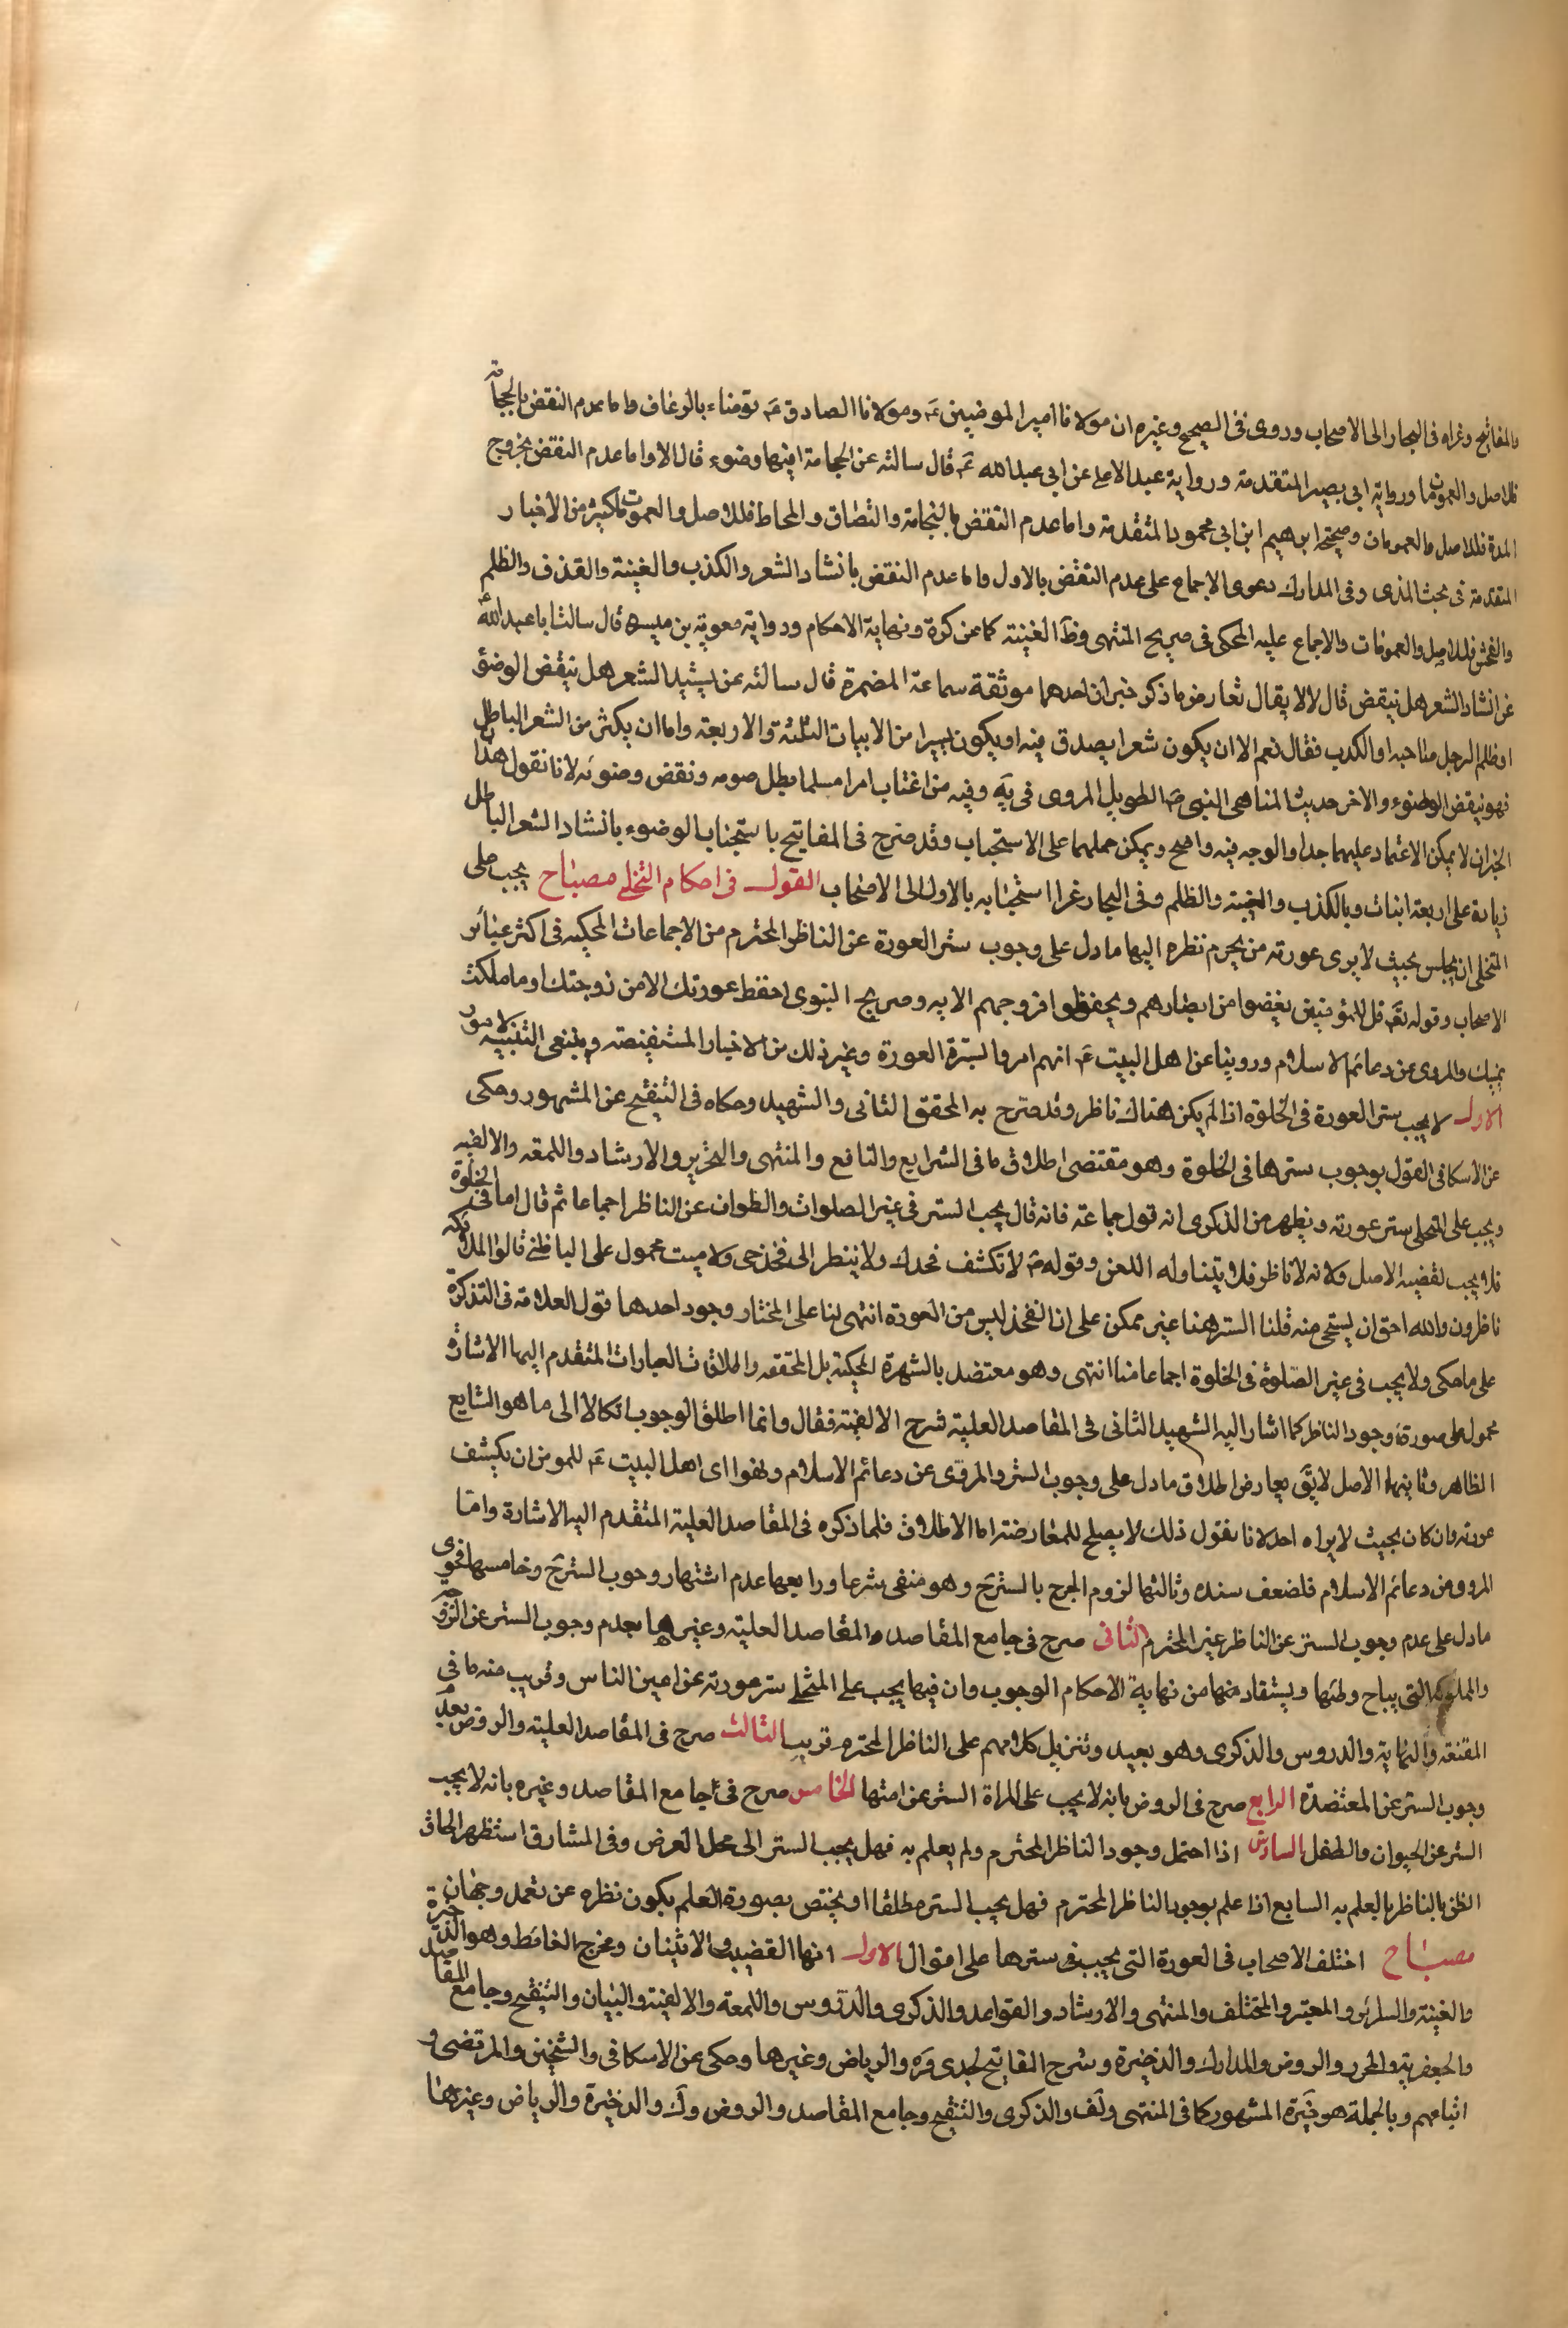 والمفاتيح وغراه فى البحار الى الاصحاب وروى فى الصحيح وغيره ان مولانا امير المومنين ع ومولانا الصادق ع توضاء بالرعاف واما عدم النقض بالحجامة
فللاصل والعمومات وما ورواية ابى بصير المتقدمة ورواية عبد الاعلى عن ابى عبد الله ع قال سالته عن الحجامة افيها وضوء قال لا واما عدم النقض بخروج
المدة فللاصل والعمومات وصحيحة ابرهيم ابن ابى محمود المتقدمة واما عدم النقض بالنخامة والبصاق والمخاط فللاصل والعمومات لكثير من الاخبار
المتقدمة فى بحث المذى وفى المدارك دعوى الاجماع على عدم النقض بالاول واما عدم النقض بانشاد الشعر والكذب والغيبة والقذف والظلم
والفحش فللاصل والعمومات والاجماع عليه المحكى فى صريح المنتهى وظ الغنية كما عن كرة ونهاية الاحكام ورواية معوية بن ميسرة قال سالت ابا عبد الله
عن انشاد الشعر هل ينقض قال لا لا يقال تعارض ما ذكر خبران احدهما موثقة سماعة المضمرة قال سالته عن نشيد الشعر هل ينقض الوضوء
او ظلم الرجل صاحبه او الكذب فقال نعم الا ان يكون شعرا يصدق فيه او يكون يسيرا من الابيات الثلثة والاربعة واما ان يكثر من الشعر الباطل
فهو ينقض الوضوء والاخر حديث المناهى النبى ص الطويل المروى فى يه وفيه من اغتاب امرا مسلما بطل صومه ونقض وضوئه لانا نقول هذا
الخبران لا يمكن الاعتماد عليهما جدا والوجه فيه واضح ويمكن حملهما على الاستحباب وقد صرح فى المفاتيح باستحباب الوضوء بانشاد الشعر الباطل
زيادة على اربعة ابيات وبالكذب والغيبة والظلم وفى البحار غرا استحبابه بالاول الى الاصحاب القول فى احكام التخلى مصباح يجب على
المتخلى ان يجلس بحيث لا يرى عورته من يحرم نظره اليها ما دل على وجوب ستر العورة عن الناظر المحترم من الاجماعات المحكيه فى اكثر عبائر
الاصحاب وقوله تع قل للمؤمنين يغضوا من ابصارهم ويحفظوا فروجهم الايه وصريح النبوى احفظ عورتك الا من زوجتك او ما ملكت
يمينك والمروى عن دعائم الاسلام وروينا عن اهل البيت ع انهم امروا بسترة العورة وغير ذلك من الاخبار المستفيضة وينبغى التنبيه لامور
الاول لا يجب ستر العورة فى الخلوة اذا لم يكن هناك ناظر وقد صرح به المحقق الثانى والشهيد وحكاه فى التنقيح عن المشهور وحكى
عن الاسكافى القول بوجوب سترها فى الخلوة وهو مقتضى اطلاق ما فى الشرايع والنافع والمنتهى والتحرير والارشاد واللمعة والالفيه
ويجب على المتخلى ستر عورته ويظهر من الذكرى انه قول جماعة فانه قال يجب الستر فى غير الصلوات والطواف عن الناظر اجماعا ثم قال اما فى الخلوة
فلا يجب لقضية الاصل ولانه لا ناظر فلا يتناوله اللعن وقوله ع لا تكشف فخدك ولا ينظر الى فخذ حى ولا ميت محمول على الباظن قالوا الملائكه
ناظرون والله احق ان يستحى منه قلنا الستر هنا غير ممكن على ان الفخذ ليس من العورة انتهى لنا على المختار وجود احدها قول العلامة فى التذكرة
على ما حكى ولا يجب فى غير الصلوة فى الخلوة اجماعا منا انتهى وهو معتضد بالشهرة المحكية بل المحققه واطلاقات العبارات المتقدم اليها الاشارة
محمول على صورة وجود الناظر كما اشار اليه الشهيد الثانى فى المقاصد العلية شرح الالفية فقال وانما اطلق الوجوب اتكالا الى ما هو الشايع
الظاهر وثانيها الاصل لا يق يعارض اطلاق ما دل على وجوب الستر والمروى عن دعائم الاسلام ونهوا اى اهل البيت ع للمومن ان يكشف
عورته وان كان بحيث لا يراه احد لانا نقول ذلك لا يصلح للمعارضة اما الاطلاق فلما ذكره فى المقاصد العلية المتقدم اليه الاشارة واما
المروى من دعائم الاسلام فلضعف سنده وثالثها لزوم الحرج بالستر ح وهو منفى شرعا ورابعها عدم اشتهار وجوب الستر ح وخامسها فحوى
ما دل على عدم وجوب الستر عن الناظر غير المحترم الثانى صرح فى جامع المقاصد والمقاصد العلية وغيرها بعدم وجوب الستر عن الزوجة
والمملوكة التى يباح وطئها ويستفاد منها من نهاية الاحكام الوجوب وان فيها يجب على المتخلى ستر عورته عن اعين الناس وقريب منه ما فى
المقنعة والنهاية والدروس والذكرى وهو بعيد وتنزيل كلامهم على الناظر المحترم قريب الثالث صرح فى المقاصد العلية والروض بعدم
وجوب الستر عن المعتضدة الرابع صرح فى الروض بانه لا يجب على المراة الستر عن امتها الخامس صرح فى جامع المقاصد وغيره بانه لا يجب
الستر عن الحيوان والطفل السادس اذا احتمل وجود الناظر المحترم ولم يعلم به فهل يجب الستر الى محل الغرض وفى المشارق استظهر الحاق
الظن بالناظر بالعلم به السابع اذا علم بوجود الناظر المحترم فهل يجب الستر مطلقا او يختص بصورة العلم بكون نظره عن تعمد وجهان
مصباح اختلف الاصحاب فى العورة التى يجب سترها على اقوال الاول انها القضيب والانثيان ومخرج الغائط وهو الذخيرة
والغنية والسرائر والمعتبر والمختلف والمنتهى والارشاد والقواعد والذكرى والدروس واللمعة والالفية والبيان والتنقيح وجامع المقاصد
والجعفرية والمحرر والروض والمدارك والذخيرة وشرح المفاتيح لجدى قره والرياض وغيرها وحكى عن الاسكافى والشيخين والمرتضى و
اتباعهم وبالجملة هو خيرة المشهور كما فى المنتهى ولف والذكرى والتنقيح وجامع المقاصد والروض وك والذخيرة والرياض وغيرها